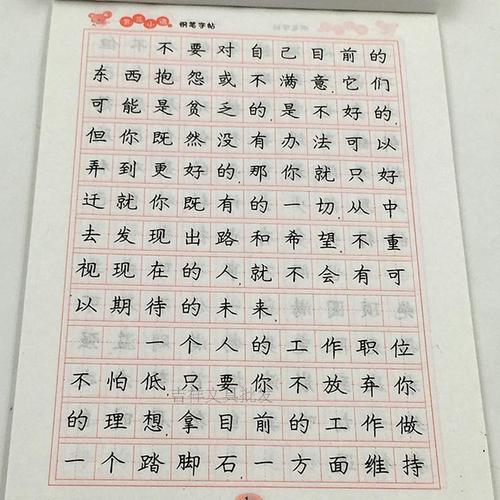 钢笔字帖
不要对自己目前的
东西抱怨或不满意.它们
可能是贫乏的.是不好的.
但你既然没有办法可以
弄到更好的.那你就只好
迁就你既有的一切.从中
去发现出路和希望.不重
视现在的人.就不会有可
以期待的未来.
一个人的工作职位
不怕低.只要你不放弃你
的理想.拿目前的工作做
一个踏脚石.一方面维持
1